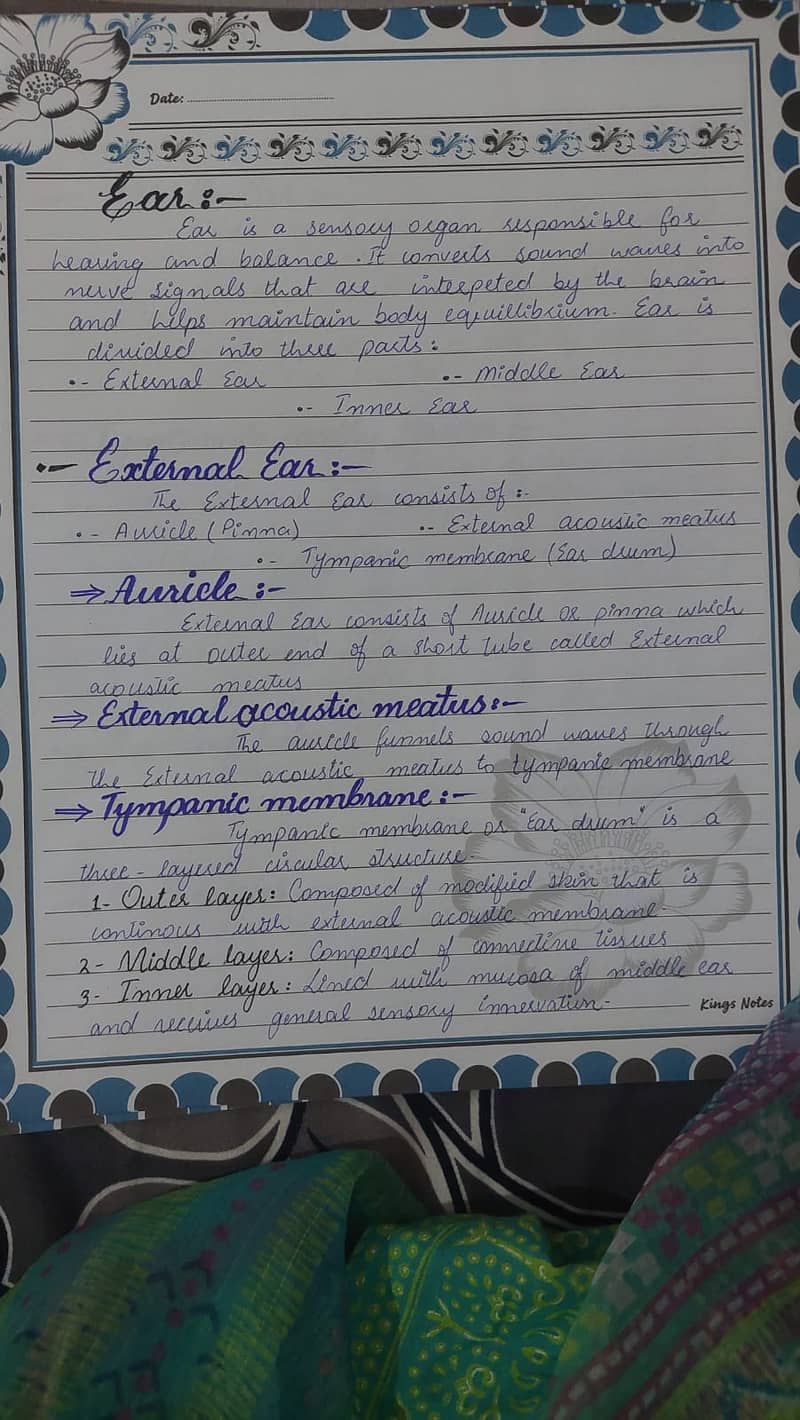 Date:
Ear :-
Ear is a sensory organ responsible for
hearing and balance . It converts sound waves into
nerve signals that are interpeted by the brain
and helps maintain body equillibrium. Ear is
divided into three parts :
•- External Ear •- Middle Ear
•- Inner Ear
•- External Ear :-
The External Ear consists of :-
•- Auricle (Pinna) •- External acoustic meatus
•- Tympanic membrane (Ear drum)
⇒ Auricle :-
External Ear consists of Auricle or pinna which
lies at outer end of a short tube called External
acoustic meatus
⇒ External acoustic meatus :-
The auricle funnels sound waves through
the External acoustic meatus to tympanic membrane
⇒ Tympanic membrane :-
Tympanic membrane or "Ear drum" is a
three - layered circular structure.
1- Outer layer : Composed of modified skin that is
continous with external acoustic membrane.
2- Middle layer : Composed of connective tissues
3- Inner layer : Lined with mucosa of middle ear
and receives general sensory innervation-
Kings Notes